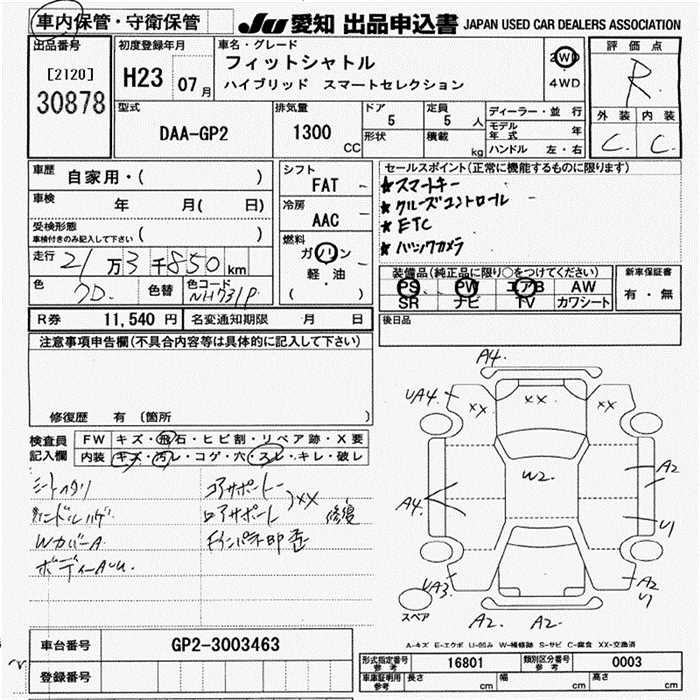 車内保管・守衛保管
JU 愛知 出品申込書 JAPAN USED CAR DEALERS ASSOCIATION
出品番号
[2120]
30878
初度登録年月
H23 07月
車名・グレード
フィットシャトル
ハイブリッド スマートセレクション
2WD
4WD
評価点
R
外装 内装
C C
型式
DAA-GP2
排気量
1300 CC
ドア
5
定員
5 人
形状
積載
kg
ディーラー・並行
モデル年式 年
ハンドル 左・右
車歴
自家用・( )
車検
年 月( 日)
受検形態
車検付きのみ記入して下さい ( )
走行 21万3千850km
色
色替
色コード
NH731P
シフト
FAT
冷房
AAC
燃料
ガソリン
軽油
( )
セールスポイント(正常に機能するものに限ります)
★スマートキー
★クルーズコントロール
★ETC
★バックカメラ
装備品(純正品に限り○をつけてください)
PS PW エアB AW
SR ナビ TV カワシート
新車保証書
有・無
R券 11,540 円
名変通知期限 月 日
後日品
注意事項申告欄(不具合内容等は具体的に記入して下さい)
修復歴 有 (箇所 )
検査員記入欄
FW キズ・飛石・ヒビ割・リペア跡・X要
内装 キズ・汚レ・コゲ・穴・スレ・キレ・破レ
シートスレ
ハンドルハゲ
WカバーA
コアサポート
ロアサポート
XX
修復
A4
UA4
XX
XX
XX
W2
A4
A2
U1
UA3
A2
U1
A2
A2
スペア
A-キズ E-エクボ U-凹み W-補修跡 S-サビ C-腐食 XX-交換済
車台番号
GP2-3003463
登録番号
形式指定番号 参考
16801
類別区分番号 参考
0003
車庫証明用 参考
長さ cm
幅 cm
高さ cm